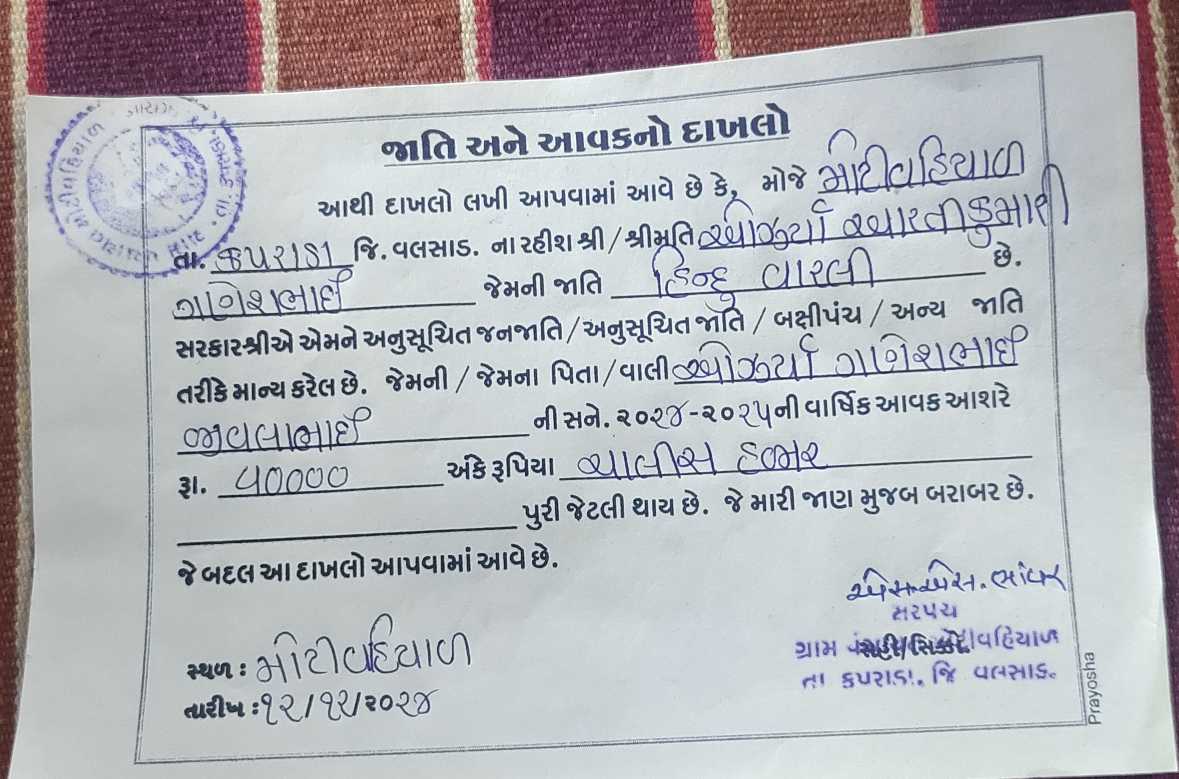 જાતિ અને આવકનો દાખલો
આથી દાખલો લખી આપવામાં આવે છે કે, મોજે મોટીવહિયાળ
તા. કપરાડા જિ. વલસાડ. ના રહીશ શ્રી / શ્રીમતિ ઓઝર્યા આરતીકુમારી
ગણેશભાઈ જેમની જાતિ હિન્દુ વારલી છે.
સરકારશ્રીએ એમને અનુસૂચિત જનજાતિ / અનુસૂચિત જાતિ / બક્ષીપંચ / અન્ય જાતિ
તરીકે માન્ય કરેલ છે. જેમની / જેમના પિતા / વાલી ઓઝર્યા ગણેશભાઈ
જીવલાભાઈ ની સને. ૨૦૨૪-૨૦૨૫ ની વાર્ષિક આવક આશરે
રૂા. ૪૦૦૦૦ અંકે રૂપિયા ચાલીસ હજાર
પુરી જેટલી થાય છે. જે મારી જાણ મુજબ બરાબર છે.
જે બદલ આ દાખલો આપવામાં આવે છે.
સ્થળ : મોટીવહિયાળ
તારીખ : ૧૨/૧૨/૨૦૨૪
સરપંચ
ગ્રામ પંચાયત મોટીવહિયાળ
સહી/સિક્કો
તા કપરાડા, જિ વલસાડ.
Prayosha